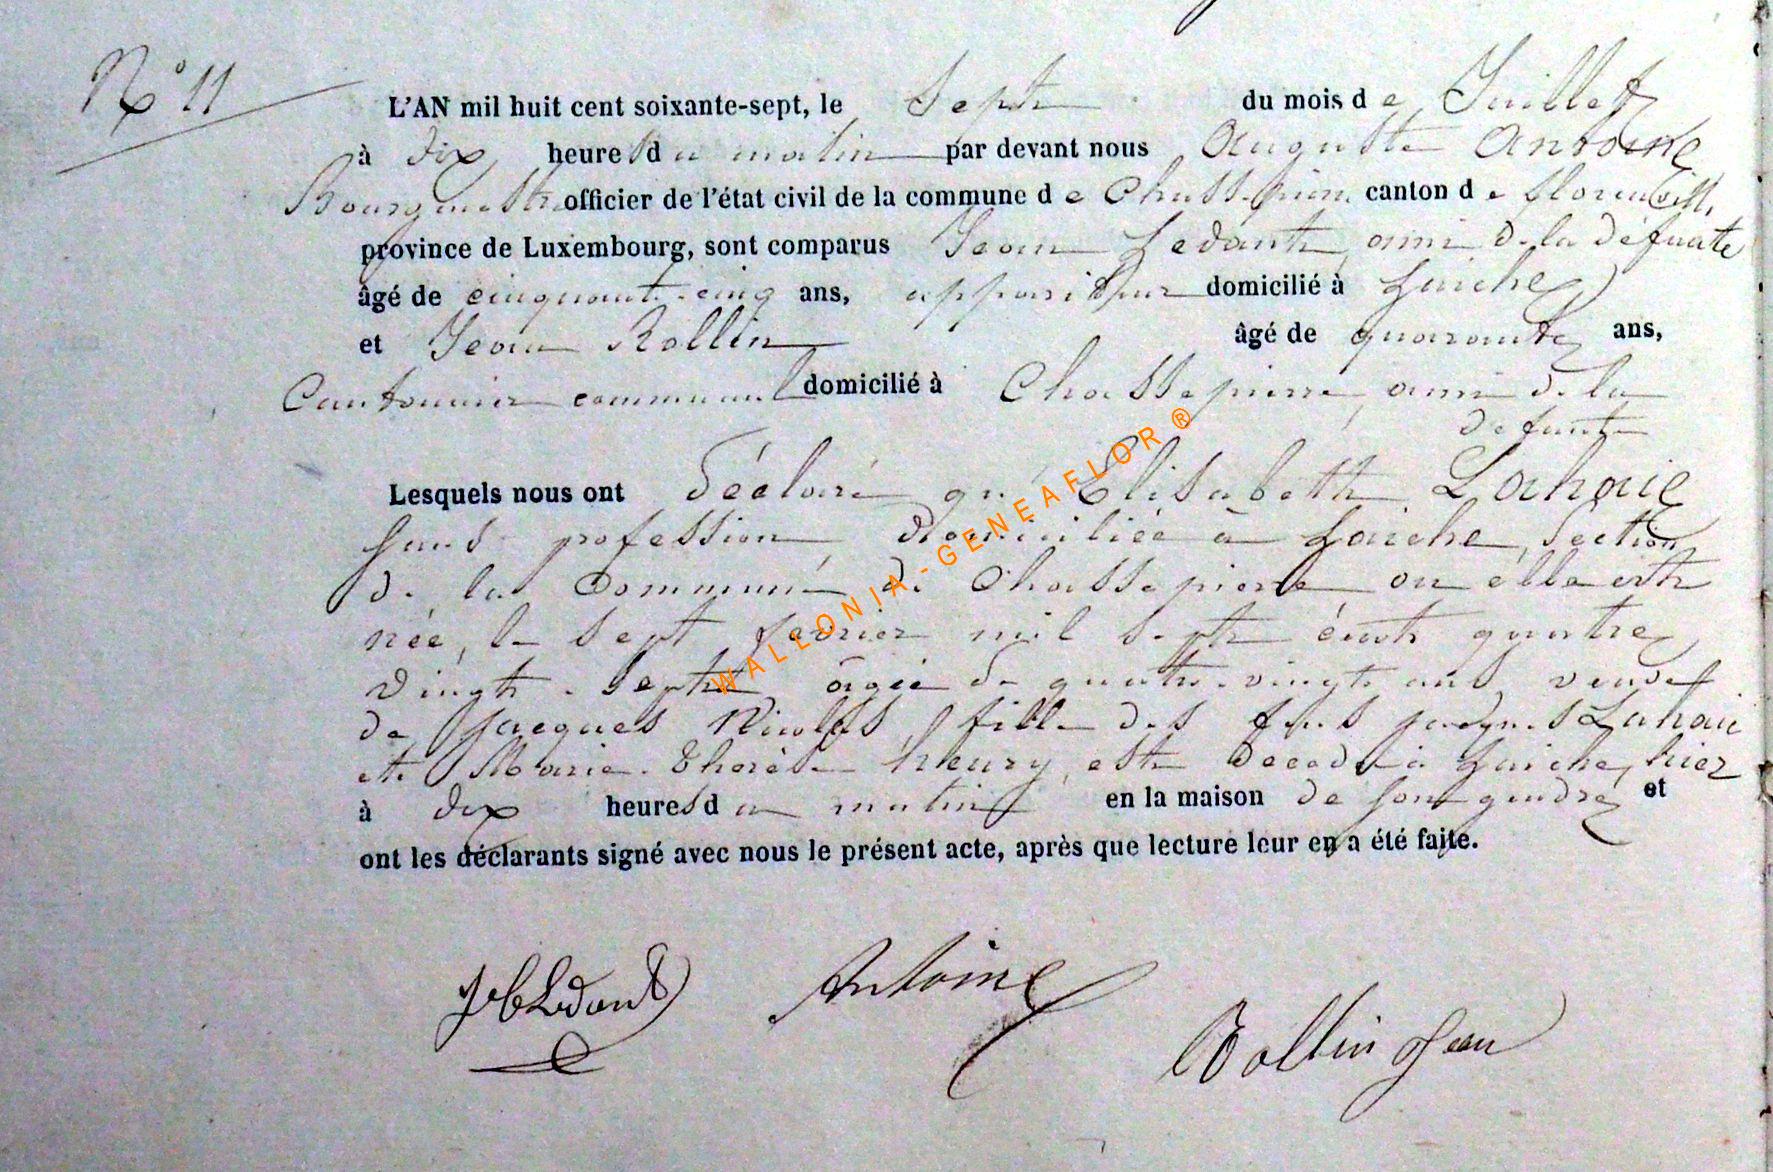 N° 11
L'AN mil huit cent soixante-sept, le Sept du mois de Juillet
à dix heures du matin par devant nous Auguste Antoine
Bourgmestre officier de l'état civil de la commune de Chassepierre canton de florenville
province de Luxembourg, sont comparus Jean Ledant ami de la défunte
âgé de cinquante-cinq ans, appariteur domicilié à Laiche
et Jean Rollin âgé de quarante ans,
Cantonnier communal domicilié à Chassepierre, ami de la
defunte
Lesquels nous ont déclaré qu'Elisabeth Lahaie
sans profession, domiciliée à Laiche, Section
de la commune de Chassepierre ou elle est
née, le sept fevrier mil sept cent quatre
vingt-sept âgée de quatre-vingt ans veuve
de Jacques Nicolas, fille des feus jacques Lahaie
et Marie-Thérèse henry, est décedé à Laiche, hier
à dix heures du matin en la maison de son gendre et
ont les déclarants signé avec nous le présent acte, après que lecture leur en a été faite.
Ledant Antoine
Rollin Jean
WALLONIA-GENEAFLOR ®